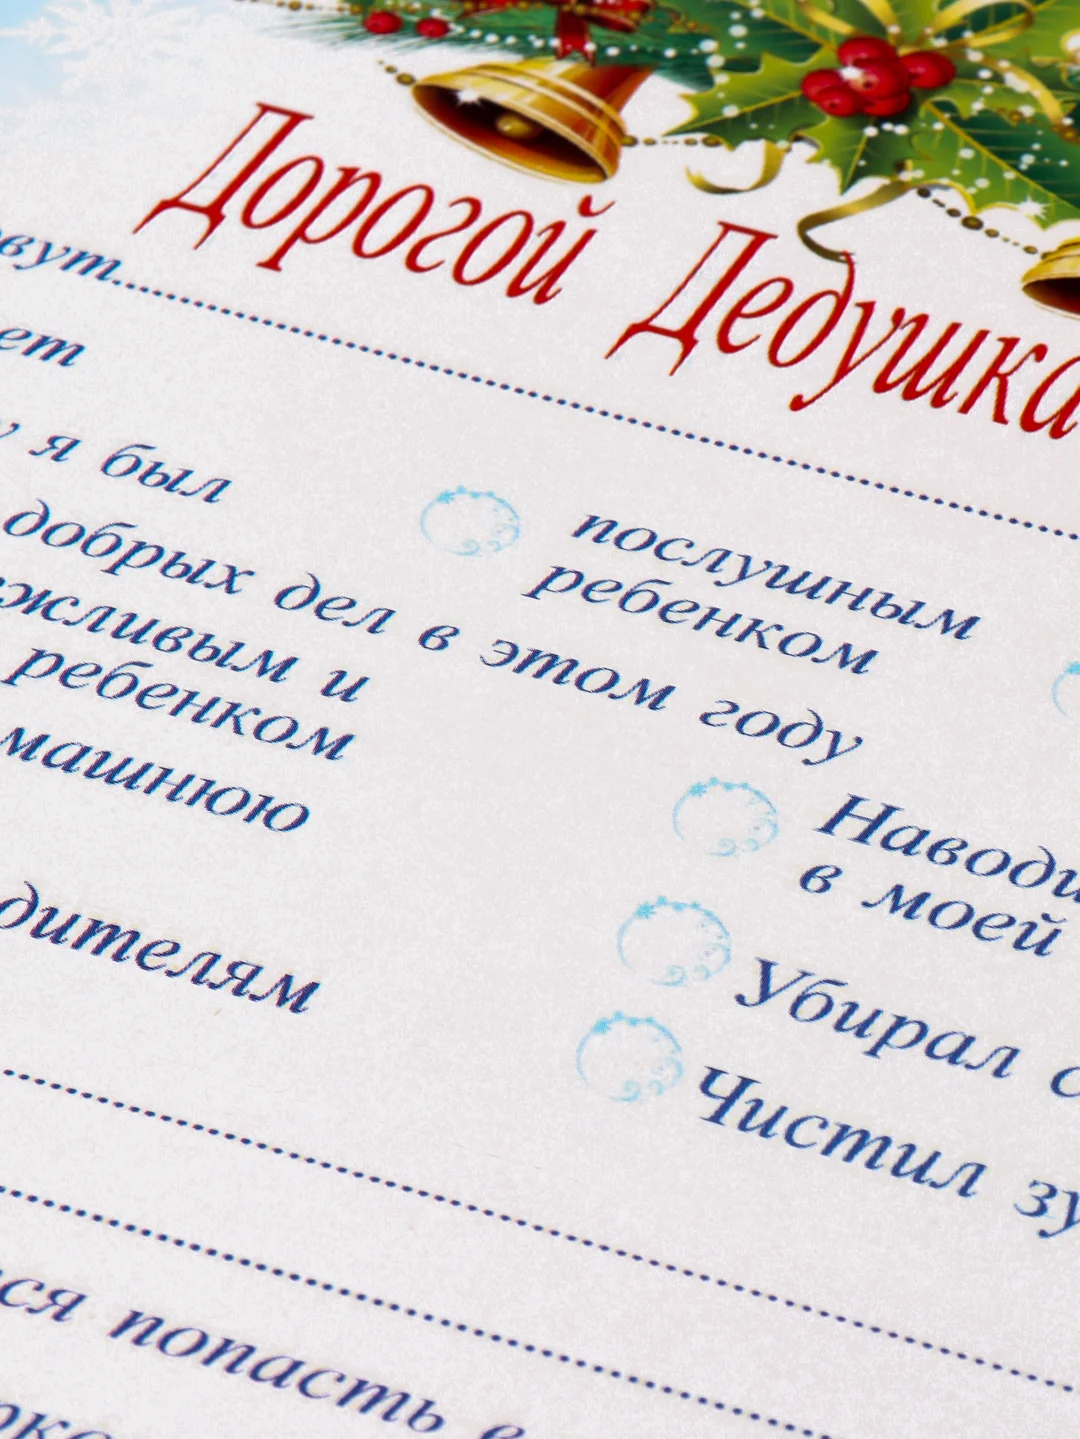 Дорогой Дедушка
вут
ет
я был
послушным
ребенком
добрых дел в этом году
жливым и
ребенком
машнюю
Наводи
в моей
дителям
Убирал
Чистил зу
ся попасть в